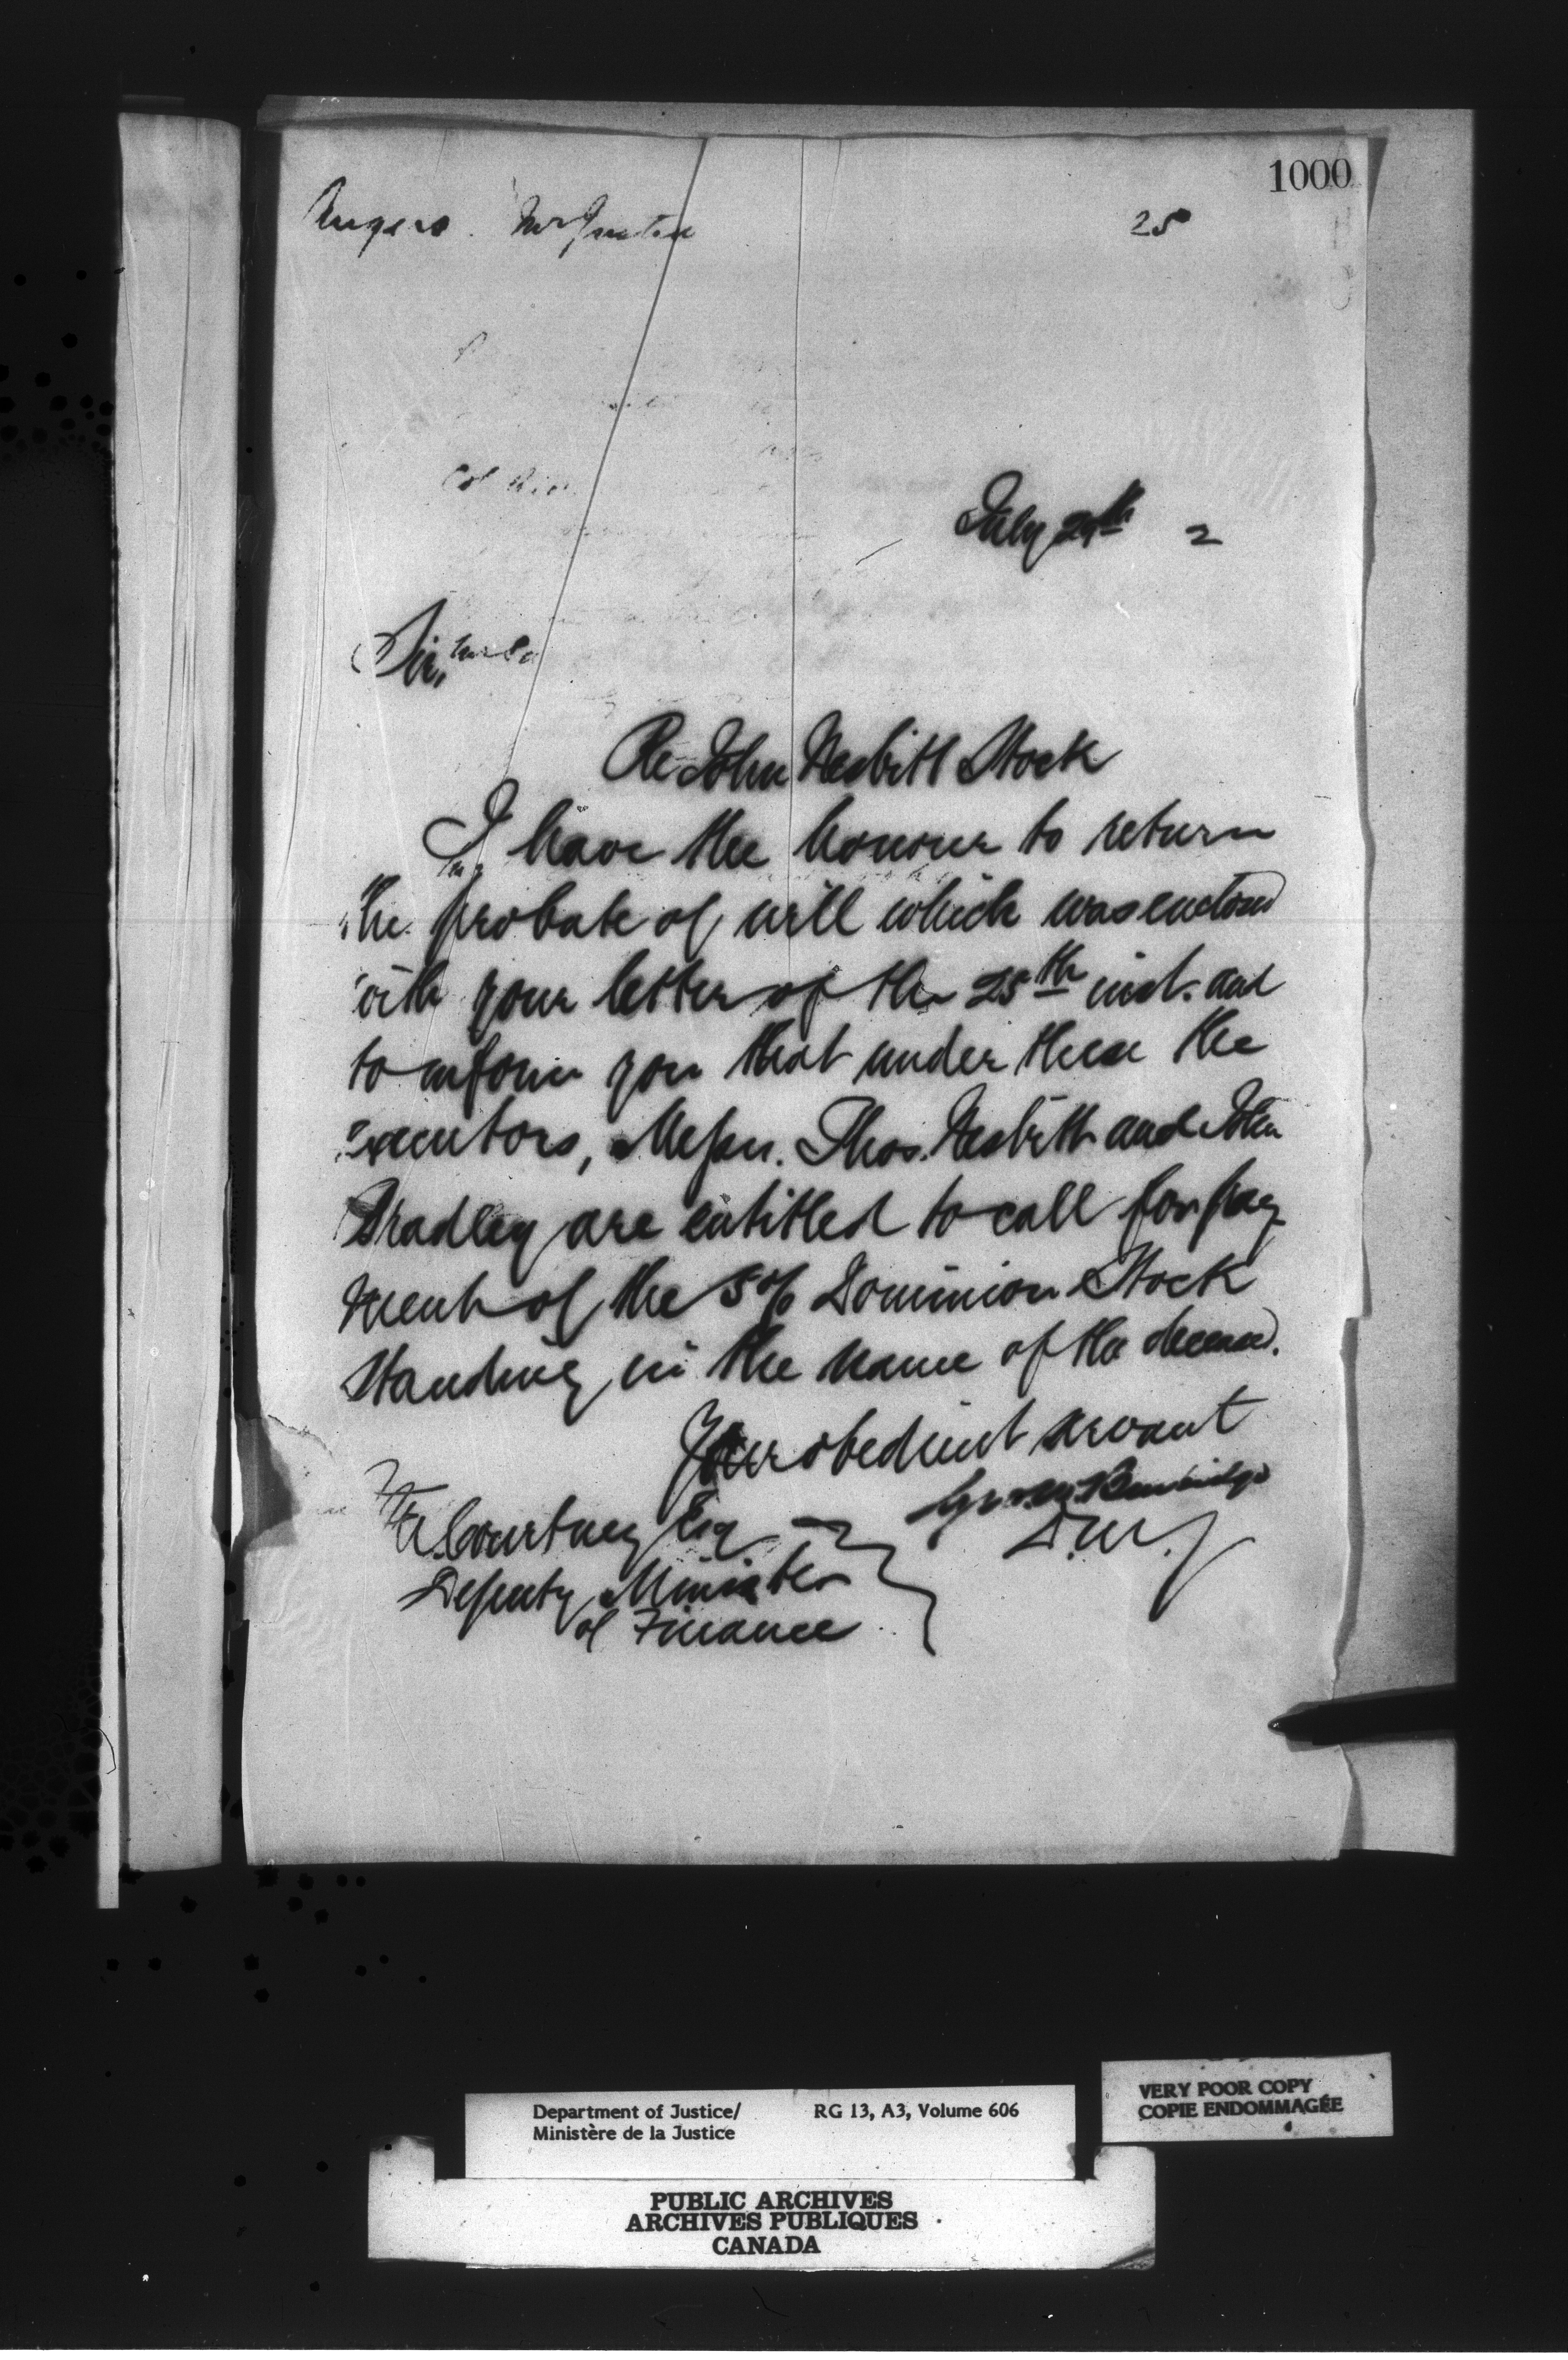 1000
25
July 29th 2
Sir,
Re John Nesbitt Stock
I have the honour to return
the probate of will which was enclosed
with your letter of the 25th inst. and
to inform you that under these the
executors, Messrs. Thos. Nesbitt and John
Bradley are entitled to call for pay-
ment of the 5% Dominion Stock
standing in the name of the deceased.
Your obedient servant
D.M.J
Courtney Esq
Deputy Minister
of Finance
VERY POOR COPY
COPIE ENDOMMAGÉE
Department of Justice/ RG 13, A3, Volume 606
Ministère de la Justice
PUBLIC ARCHIVES
ARCHIVES PUBLIQUES
CANADA